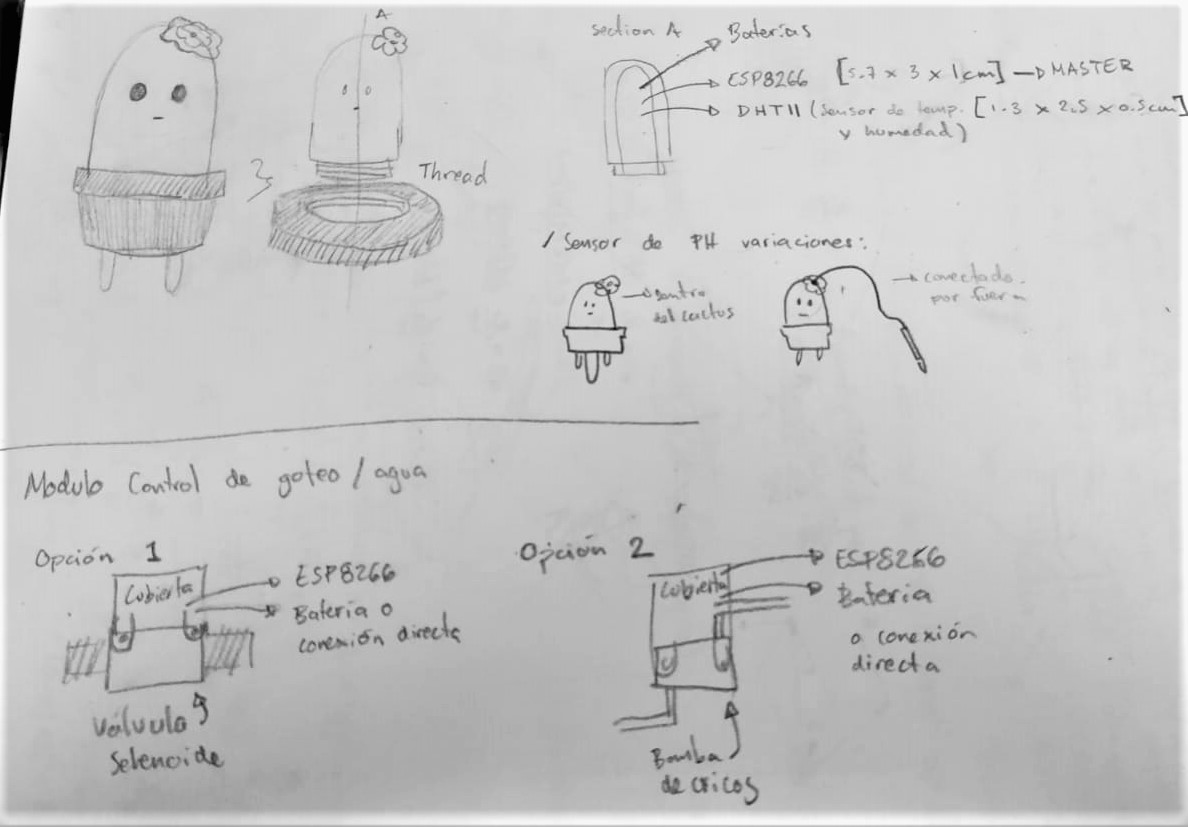 A
Thread
section A
Baterías
ESP8266 [5.7 x 3 x 1cm] → MASTER
DHT11 (Sensor de temp. [1.3 x 2.5 x 0.5cm]
y humedad)
/ Sensor de PH variaciones:
dentro
del cactus
conectado
por fuera
Modulo Control de goteo / agua
Opción 1
Cubierta
ESP8266
Bateria o
conexión directa
Válvula
Selenoide
Opción 2
Cubierta
ESP8266
Bateria
o conexión
directa
Bomba
de